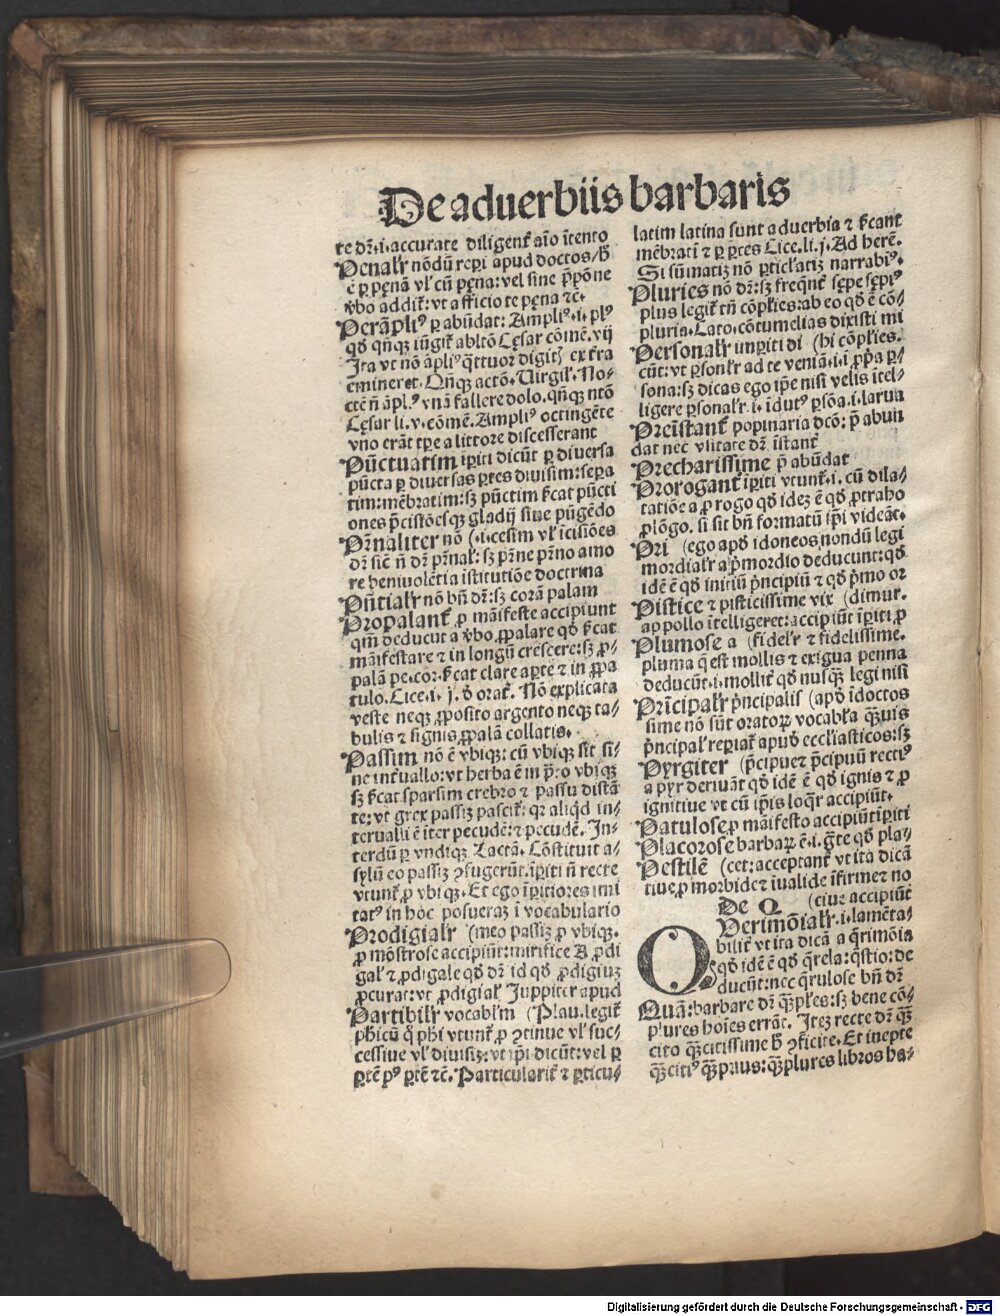 De aduerbiis barbaris
te dr̃.i.accurate diligent̃ aĩo ĩtento
Penalr̃ nõdũ repi apud doctos/h̃
ẽ p pęnã vl̃ cũ pęna: vel sine p̃põne
v̾bo addit̃: vt afficio te pęna ⁊c̃.
Perãpliꝰ p abũdat: Ampliꝰ.i.plꝰ
Ita vt nõ ãpliꝰ q̃ttuor digit̃ extra
emineret. Qñq̃ actõ. Virgil̃. No-
ctẽ ñ ãplꝰ vnã fallere dolo. qñq̃ ntõ
Cęsar li.v.cõmẽ. Ampliꝰ octingẽte
vno erãt tpe a littore discesserant
Pũctuatim ipiti dicũt p diuersa
pũcta p diuersas ptes diuisim: sepa
tim: mẽbratim: sꝫ pũctim s̃cat pũcti
ones p̃cisiõesqꝫ gladij siue pũgẽdo
Pr̃naliter nõ (.i.cesim vl̃ ĩcisiões
dr̃ sic̃ ñ dr̃ pr̃nal̃: sꝫ pr̃ne pr̃no amo
re beniuolẽtia ĩstitutiõe doctrina
Pñtialr̃ nõ bñ dr̃: sꝫ corã palam
Propalant̃ p mãifeste accipiunt
qm̃ deducut a v̾bo ꝓpalare qd̾ s̃cat
mãifestare ⁊ in longũ crescere: sꝫ ꝓ-
palã pe.cor. s̃cat clare apte ⁊ in ꝓpa
tulo. Cice.i.j.d̾ orat̃. Nõ explicata
veste neqꝫ ꝓposito argento neqꝫ ta-
bulis ⁊ signis ꝓpalã collatis.
Passim nõ ẽ vbiqꝫ: cũ vbiqꝫ sit si-
ne int̾uallo: vt herba ẽ in p̃to vbiqꝫ
sꝫ s̃cat sparsim crebro ⁊ passu distã
te: vt grex passiꝫ pascit̃: qꝛ aliqd in-
terualli ẽ iter pecudẽ: ⁊ pecudẽ. In-
terdũ p vndiqꝫ Lactã. Cõstituit a-
sylũ eo passiꝫ ꝯfugerũt. ipiti ñ recte
vtunt̃ p vbiqꝫ. Et ego ipitiores imi
tatꝰ in hoc posueraꝫ i vocabulario
Prodigialr̃ (meo passiꝫ p vbiqꝫ.
ꝓ mõstrose accipiũt: mirifice A ꝓdi
gal̃ ⁊ ꝓdigale qd̾ dr̃ id qd̾ ꝓdigiuꝫ
ꝓcurat: vt ꝓdigial̃ Juppiter apud
Partibilr̃ vocabl̃m (Plau.legit̃
phicũ q̃ phi vtunt̃ ꝓ ꝯtinue vl̃ suc-
cessiue vl̃ diuisiꝫ: vt ipi dicũt: vel p
ptẽ pꝰ ptẽ ⁊c̃. Particularit̃ ⁊ pticu-
latim latina sunt aduerbia ⁊ s̃cant
mẽbrati ⁊ p ptes Cice.li.j. Ad herẽ.
Si sũmatiꝫ nõ pticl̃atiꝫ narrabiꝰ.
Pluries nõ dr̃: sꝫ freq̃nt̃ sępe sępiꝰ
plus legit̃ tñ cõpl̃es: ab eo qd̾ ẽ cõ-
pluria. Cato. cõtumelias dixisti mi
Personalr̃ unpiti di (hi cõpl̃es.
cũt: vt psonlr̃ ad te veniã.i.i ꝓp̃a p-
sona: sꝫ dicas ego ipe nisi velis ĩtel-
ligere psonalr̃.i. ĩdutꝰ psõa.i.larua
Preĩstant̃ popinaria dcõ: p̃ abun
dat nec vsitate dr̃ ĩstant̃
Precharissime p̃ abũdat
Prorogant̃ ipiti vtunt̃.i. cũ dila-
tatiõe a ꝓrogo qd̾ ideꝫ ẽ qd̾ ꝓtraho
ꝓlõgo. si sit bñ formatũ ipi videãt.
Pri (ego apd̾ idoneos nondũ legi
mordialr̃ a p̃mordio deducunt: qd̾
idẽ ẽ qd̾ initiũ p̃ncipiũ ⁊ qd̾ p̃mo or
Pistice ⁊ pisticissime vix (dimur.
apollo ĩtelligeret: accipiũt ipiti ꝓ
Plumose a (fidel̃r ⁊ fidelissime.
pluma q̃ est mollis ⁊ exigua penna
deducũt.i. mollit̃ qd̾ nusqꝫ legi nisi
Prĩcipalr̃ p̃ncipalis (apd̾ ĩdoctos
sime nõ sũt oratoꝝ vocabl̃a q̃ꝫuis
p̃ncipal̃ repiat̃ apud eccl̃iasticos: sꝫ
Pyrgiter (p̃cipue ⁊ p̃cipuũ rectiꝰ
a pyr deriuãt qd̾ idẽ ẽ qd̾ ignis ⁊ ꝓ
ignitiue vt cũ ipis loq̃r accipiũt.
Patulose ꝓ mãifesto accipiũt ipiti
Placorose barbaꝝ ẽ.i.g̃te qd̾ pla-
Pestilẽ (cet: acceptant̃ vt ita dicã
tiue ꝓ morbide ⁊ iualide ĩfirme ⁊ no
De Q (ciue accipiũt
Qverimõialr̃.i.lamẽta-
bilit̃ vt ita dicã a q̃rimõia
qd̾ idẽ ẽ qd̾ q̃rela: q̃stio: de
ducũt: nec q̃rulose bñ dr̃
Quã: barbare dr̃ q̃ꝫpl̃es: sꝫ bene cõ-
plures hoies errãt. Iteꝫ recte dr̃ q̃ꝫ
cito q̃ꝫcitissime h̃ ꝯficite. Et inepte
q̃ꝫcitꝰ q̃ꝫprius: q̃ꝫplures libros ha-
Digitalisierung gefördert durch die Deutsche Forschungsgemeinschaft - DFG